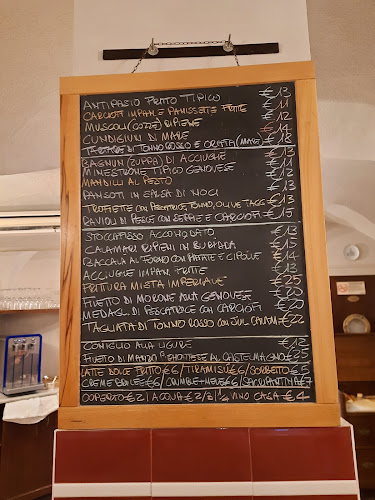 ANTIPASTO FRITTO TIPICO €13
CARCIOFI IMPAN. E PANISSETTE FRITTE €11
MUSCOLI (COZZE) RIPIENE €12
CUNDIGIUN DI MARE €14
TARTARE DI TONNO ROSSO E ORATA (MARE) €18
BAGNUN (ZUPPA) DI ACCIUGHE €13
MINESTRONE TIPICO GENOVESE €11
MANDILLI AL PESTO €12
PANSOTI IN SALSA DI NOCI €13
TROFIETTE CON PESCATRICE, TONNO, OLIVE TAGG. €13
RAVIOLI DI PESCE CON SEPPIE E CARCIOFI €15
STOCCAFISSO ACCOMODATO €13
CALAMARI RIPIENI IN BURIDDA €15
BACCALÀ AL FORNO CON PATATE E CIPOLLE €14
ACCIUGHE IMPAN. FRITTE €13
FRITTURA MISTA IMPERIALE €25
FILETTO DI MORONE ALLA GENOVESE €20
MEDAGL. DI PESCATRICE CON CARCIOFI €20
TAGLIATA DI TONNO ROSSO CON JUL. €22
CONIGLIO ALLA LIGURE €12
FILETO DI MANZO AL CASTELMAGNO €25
LATTE DOLCE FRITTO €6 / TIRAMISÙ €6 / SORBETTO €5
CREME BRULEE €6 / CRUMBLE MELE €6 / SACRIPANTINA €7
COPERTO €2 | ACQUA €2 / 2 / ¼ VINO CASA €4